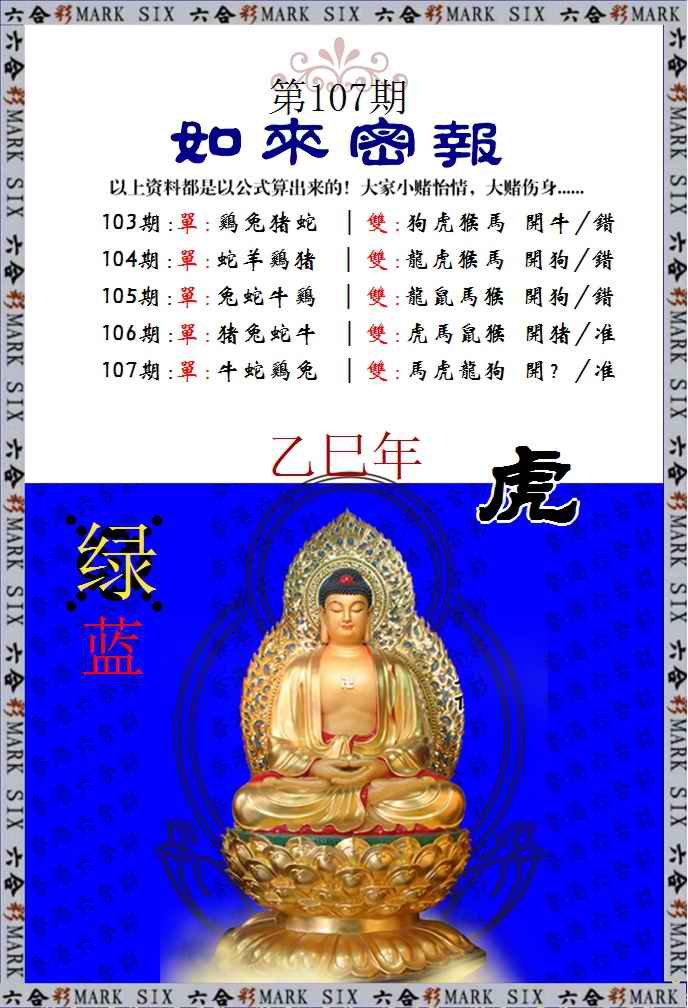 六合彩MARK SIX 六合彩MARK SIX 六合彩MARK SIX 六合彩MARK SIX 六合彩MARK SIX
第107期
如來密報
以上资料都是以公式算出来的！大家小赌怡情，大赌伤身......
103期:單:鷄兔猪蛇 | 雙:狗虎猴馬 開牛/錯
104期:單:蛇羊鷄猪 | 雙:龍虎猴馬 開狗/錯
105期:單:兔蛇牛鷄 | 雙:龍鼠馬猴 開狗/錯
106期:單:猪兔蛇牛 | 雙:虎馬鼠猴 開猪/准
107期:單:牛蛇鷄兔 | 雙:馬虎龍狗 開？/准
乙巳年
虎
绿
蓝
六合彩MARK SIX 六合彩MARK SIX 六合彩MARK SIX 六合彩MARK SIX 六合彩MARK SIX